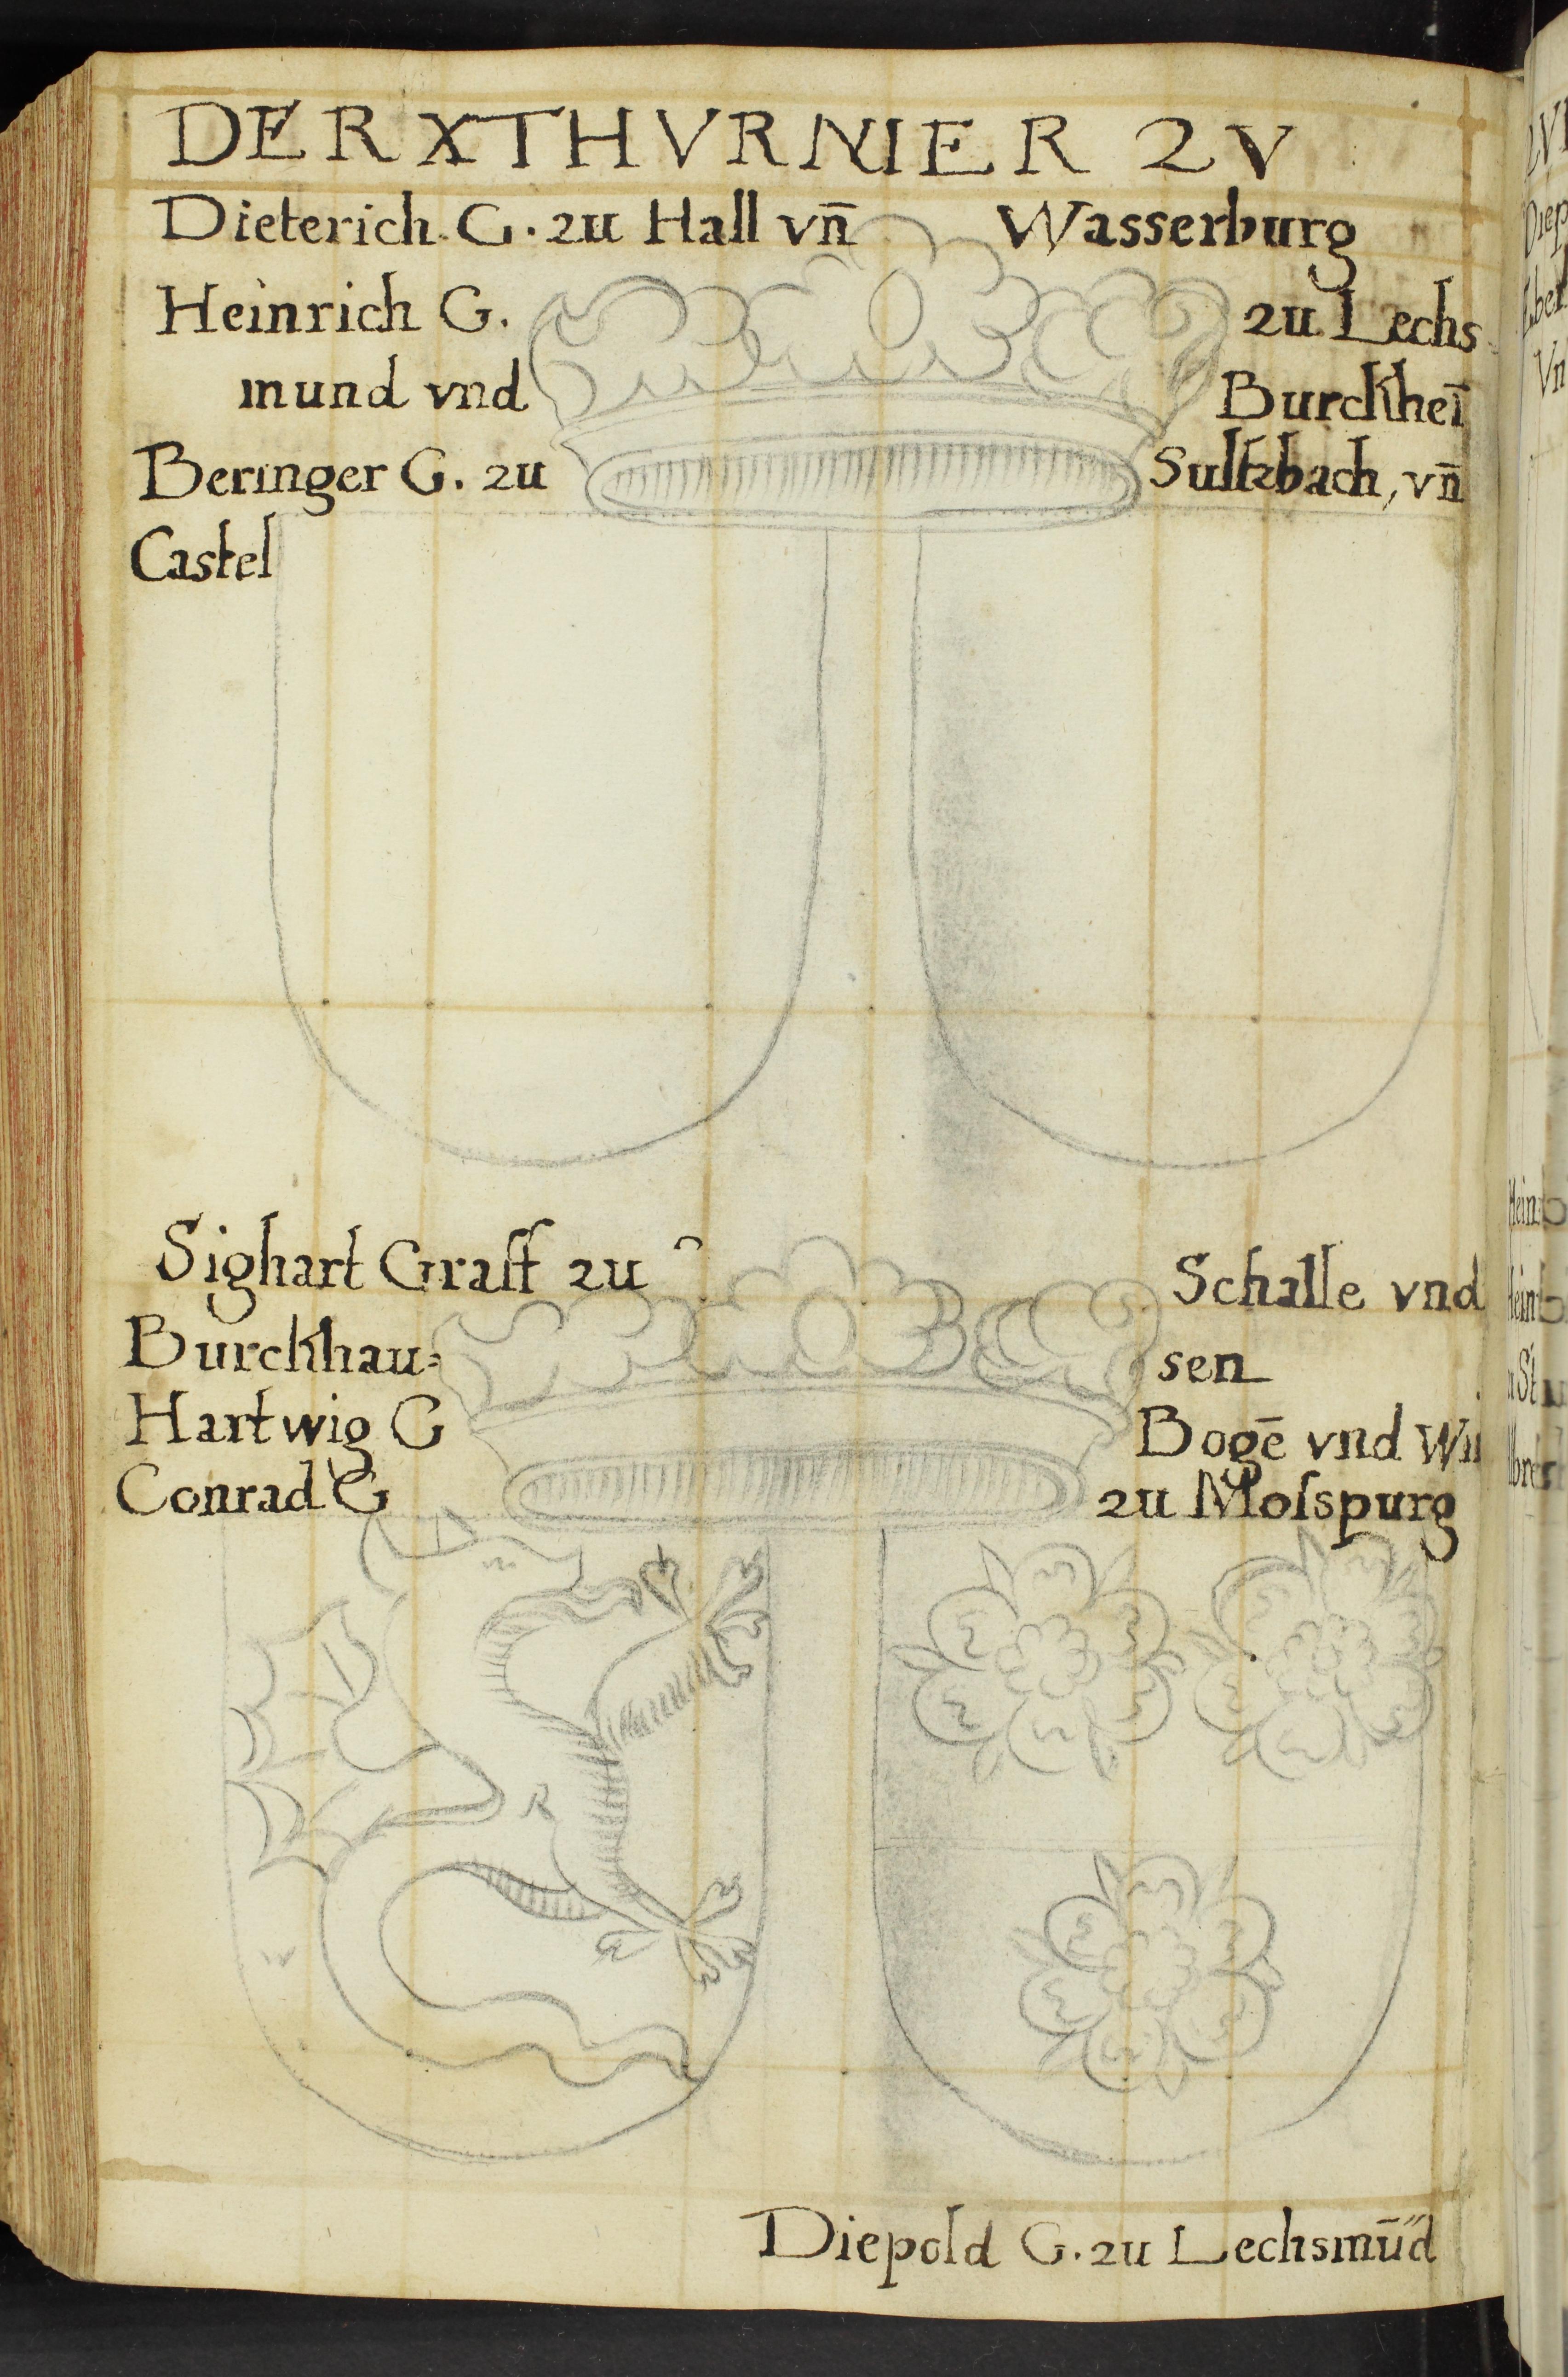 DER X THVRNIER ZV
Dieterich G. zu Hall vn̄ Wasserburg
Heinrich G. zu Lechs
mund vnd Burckhei̅
Beringer G. zu Sultzbach, vn̄
Castel
Sighart Graff zu Schalle vnd
Burckhau= sen
Hartwig G Bogē vnd Wi
Conrad G zu Moſspurg
R
Diepold G. zu Lechsmūd